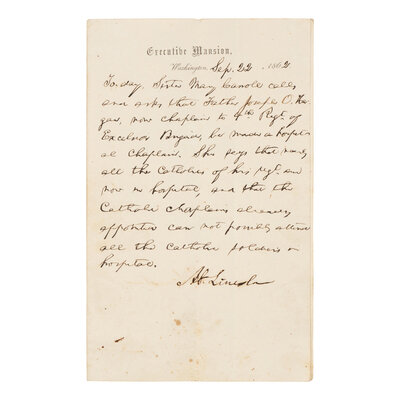 Executive Mansion,
Washington, Sep. 22, 1862
To-day, Sister Mary Carroll calls
and asks that Father Joseph O.Ha-
gan, now chaplain to 4th Regt. of
Excelsior Brigade, be made a hospit-
al chaplain. She says that nearly
all the Catholics of his regt. are
now in hospital, and that the
Catholic chaplains already
appointed can not possibly attend
all the Catholic soldiers in
hospitals.
A. Lincoln